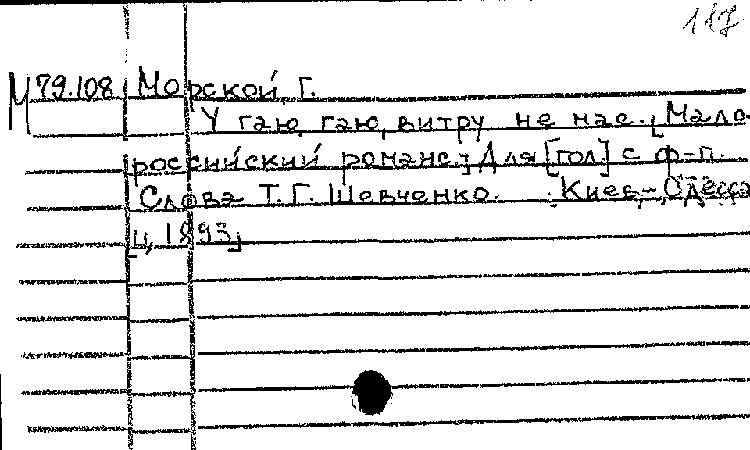 117
М 79.108 Морской, Г.
У гаю, гаю, витру не мае. [Мало-
российский романс.] Для [гол] с ф-п.
Слова Т. Г. Шевченко. Киев-Одесса
ц. 1893]